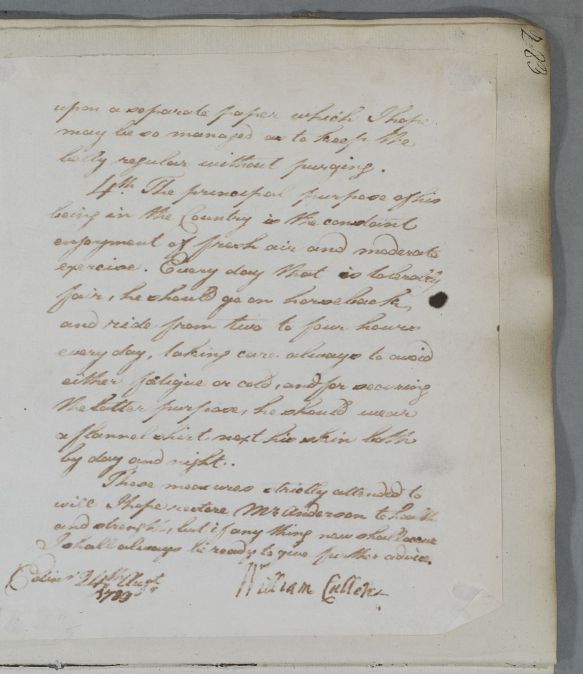 upon a separate paper which I hope
may be so managed as to keep the
belly regular without purging.
4th. The principal purpose of his
being in the Country is the constant
enjoyment of fresh air and moderate
exercise. Every day that is tolerably
fair, he should go on horseback,
and ride from two to four hours
every day, taking care always to avoid
either fatigue or cold, and for securing
the latter purpose, he should wear
a flannel shirt next his skin both
by day and night.
These measures strictly attended to
will I hope restore Mr Anderson to health
and strength, but if any thing new shall occur
I shall always be ready to give further advice.
Edinr. 24th Augt.
William Cullen